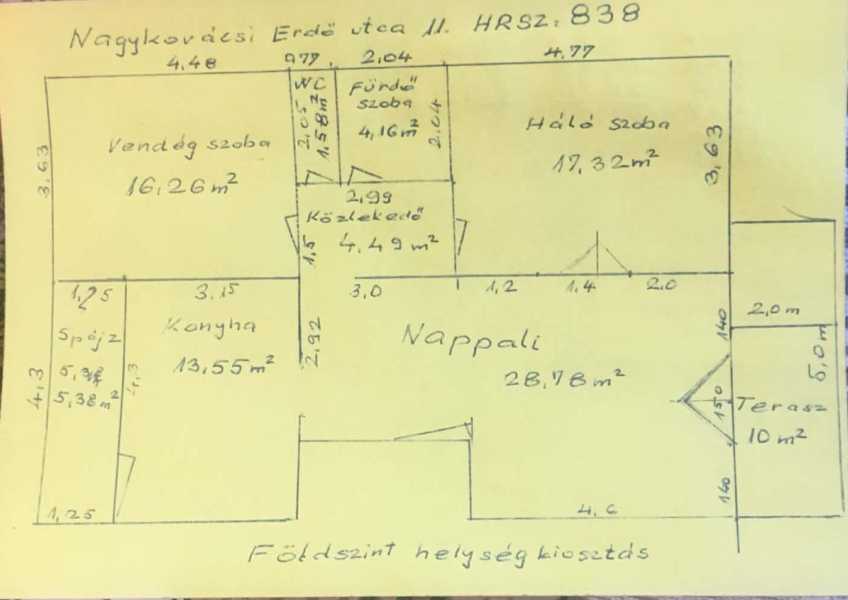 Nagykovácsi Erdő utca 11. HRSZ: 838
4,48
0,77
2,04
4,77
WC
2,05
1,58 m²
Fürdő
szoba
4,16 m²
2,04
Háló szoba
17,32 m²
3,63
3,63
Vendég szoba
16,26 m²
2,99
Közlekedő
4,49 m²
1,5
1,25
3,15
3,0
1,2
1,4
2,0
2,0 m
Spájz
5,38 m²
4,3
4,3
Konyha
13,55 m²
2,92
Nappali
28,78 m²
140
150
140
5,0 m
Terasz
10 m²
1,25
4,6
Földszint helységkiosztás